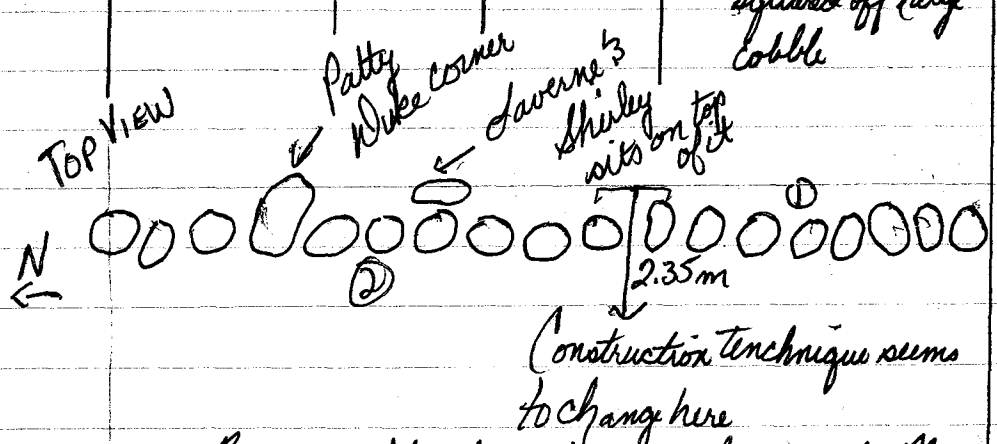 squared off large
cobble
TOP VIEW
Patty
Duke corner
Laverne &
Shirley
sits on top
of it
①
N
②
2.35m
Construction tenchnique seems
to change here